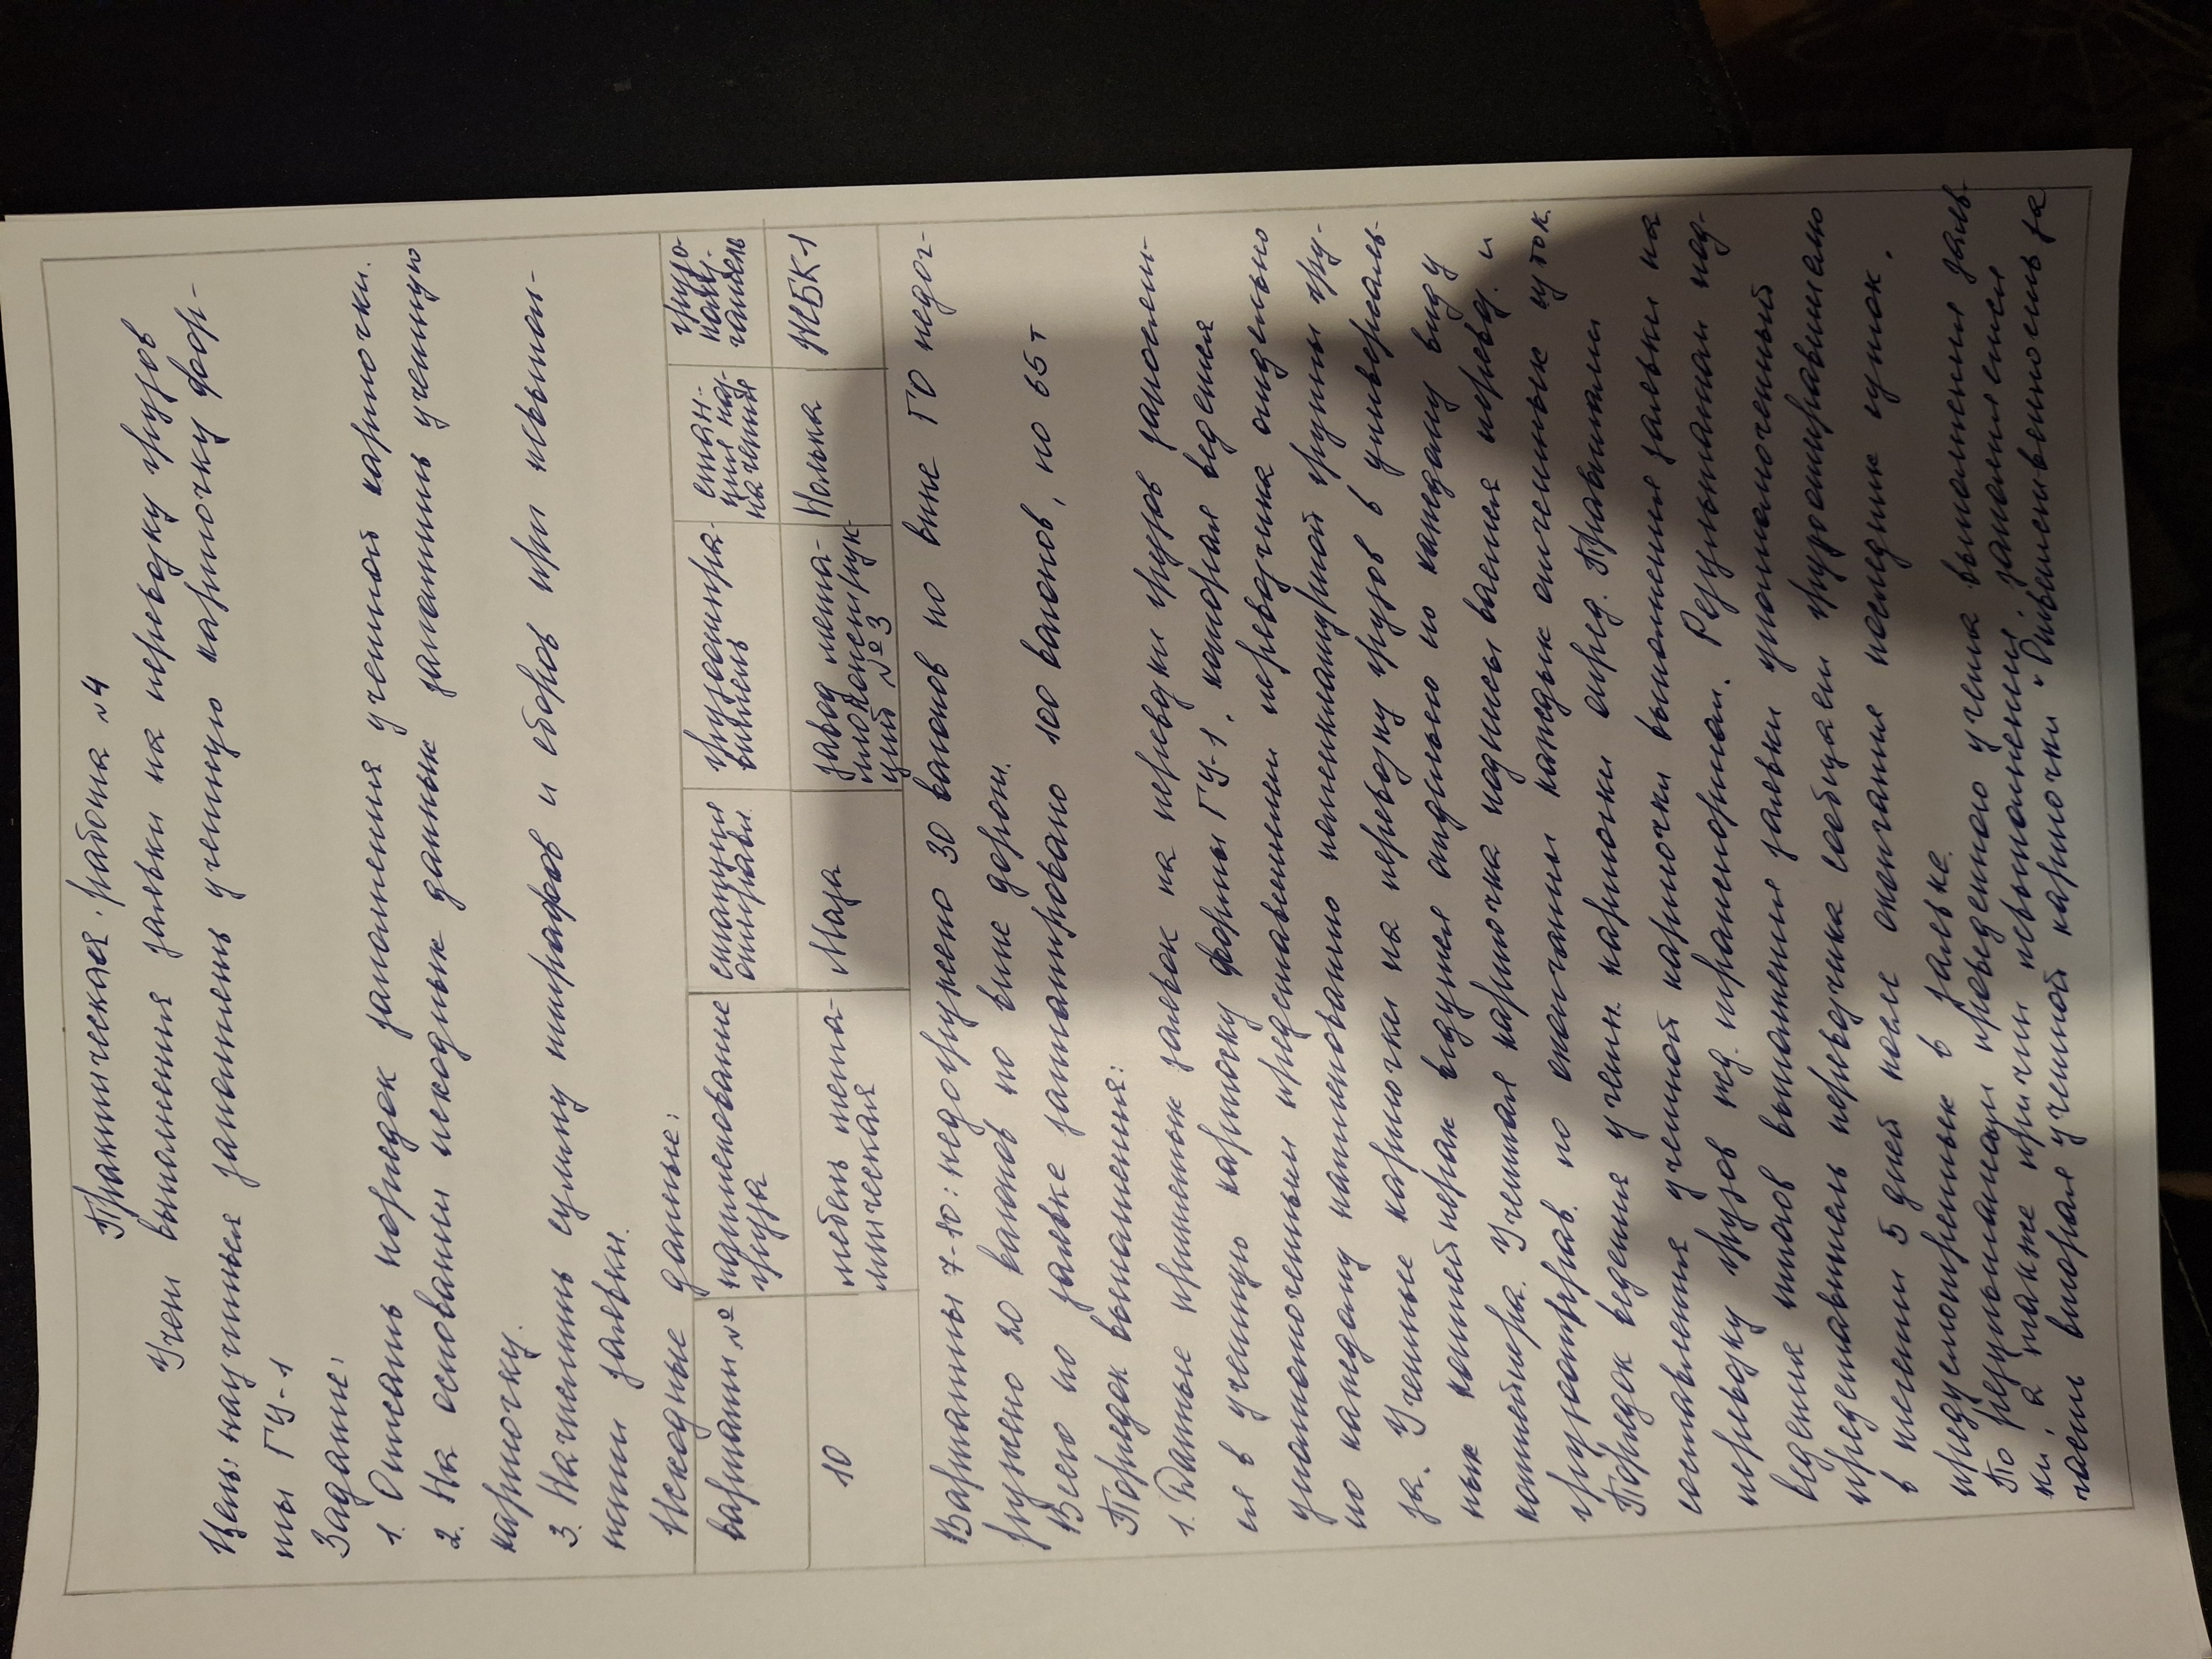 Практическая работа №4
Учет выполнения заявки на перевозку грузов
Цель: научиться заполнять учетную карточку фор-
мы ГУ-1
Задание:
1. Описать порядок заполнения учетной карточки.
2. На основании исходных данных заполнить учетную
карточку.
3. Начислить сумму штрафов и сборов при невыпол-
нении заявки.
Исходные данные:
вариант № | наименование груза | станция отправл. | грузоотпра-витель | стан-ция наз-начения | грузо-полу-чатель
10 | мебель мета-лическая | Маза | завод мета-локонструк-ций №3 | Нолька | ЖБК-1
Варианты 7-10: недогружено 30 вагонов по вине ГО недог-
ружено 20 вагонов по вине дороги.
Всего по заявке запланировано 100 вагонов, по 65 т
Порядок выполнения:
1. Данные принятых заявок на перевозки грузов заполняют-
ся в учетную карточку формы ГУ-1, которая ведется
уполномоченным представителем перевозчика отдельно
по каждому наименованию номенклатурной группы гру-
за. Учетные карточки на перевозку грузов в универсаль-
ных контейнерах ведутся отдельно по каждому виду
контейнера. Учетная карточка подписывается перевоз. и
грузоотправ. по окончании каждых отчетных суток.
Порядок ведения учетн. карточки опред. Правилами
составления учетной карточки выполнения заявки на
перевозку грузов жд. транспортом. Результатам под-
ведения итогов выполнения заявки уполномоченный
представитель перевозчика сообщает грузоотправителю
в течении 5 дней после окончания последних суток,
предусмотренных в заявке.
По результатам проведенного учета выполнения заяв
ки, а также причин невыполнения, заполняется
часть вторая учетной карточки "Ответственность за